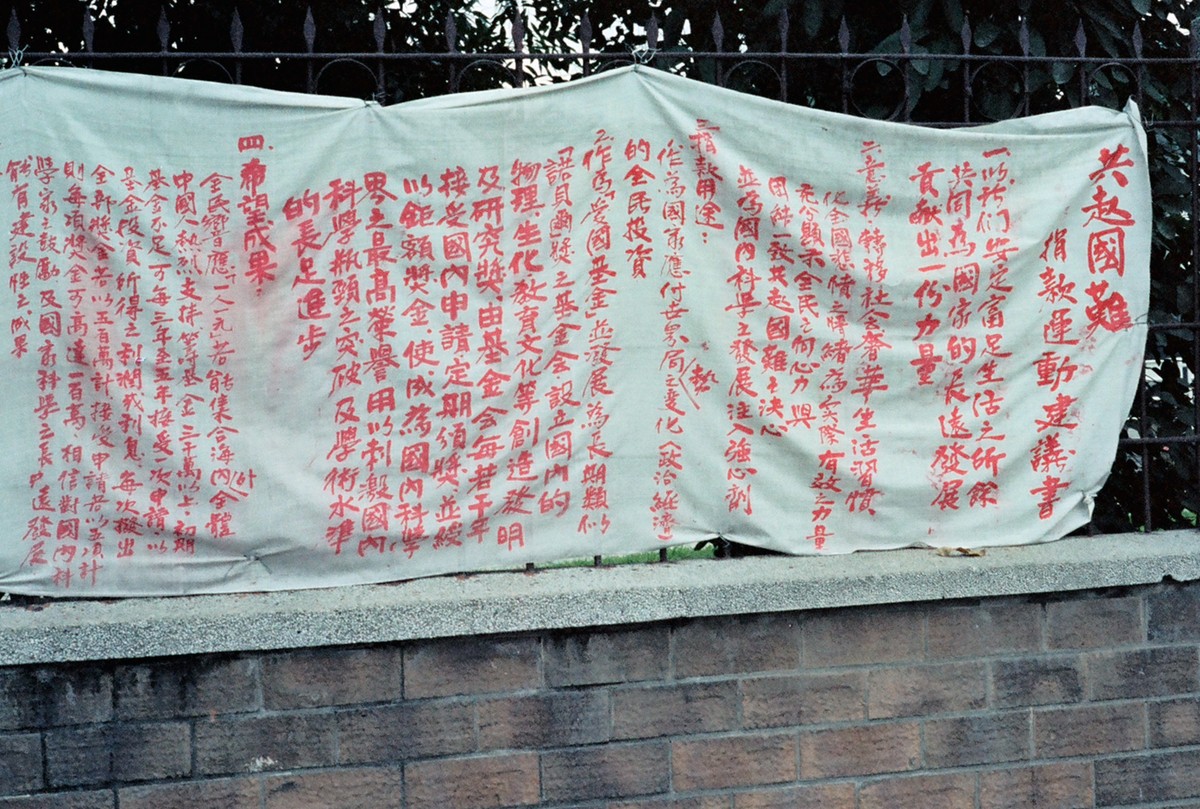 共赴國難
捐款運動建議書
一.以我们安定富足生活之所餘
共同為國家的長遠發展
貢献出一份力量
二.意義:轉移社会奢華生活習慣
化全國悲憤之情緒為实際有效之力量
充分顯示全民之向心力與
團結一致共赴國難之決心
並為國內科學之發展注入強心劑
三捐款用途:
作為國家應付世界局勢之变化(政治經濟)
的全民投資
2.作為「愛國基金」並發展為長期類似
「諾貝爾獎」之基金会設立國內的
物理.生化.教育文化等創造發明
及研究獎,由基金会每若干年
接受國內申請定期頒獎並綬
以鉅額獎金、使成為國內科學
界之最高榮譽用以刺激國內
科學瓶頸之突破及學術水準
的長足進步
四.希望成果:
全民響應一人一元若能集合海內外全體
中國人熱烈支持,等基金二千萬以上,初期
基金不足可每三年至五年接受一次申請,以
基金投資所得之利潤或利息,每次撥出
全部獎金若以五百萬計接受申請者以五項計
則每項獎金可高達一百萬,相信對國內科
學家之鼓勵及國家科學之長遠發展
能有建設性之成果